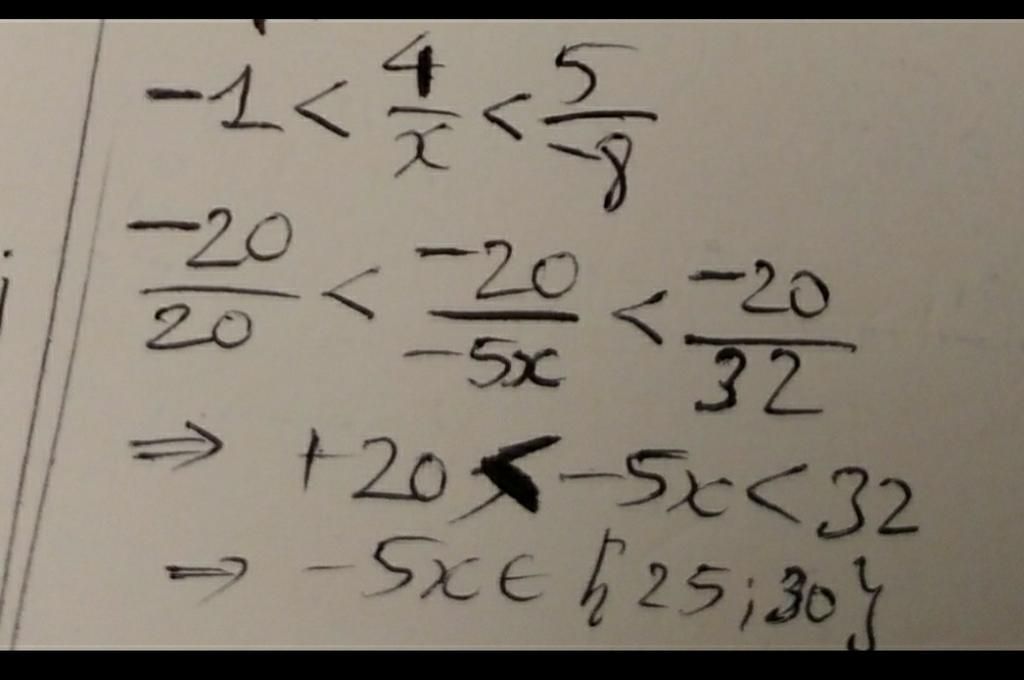 -1 < 4/x < 5/-8
-20/20 < -20/-5x < -20/32
⇒ +20 < -5x < 32
⇒ -5x ∈ {25; 30}